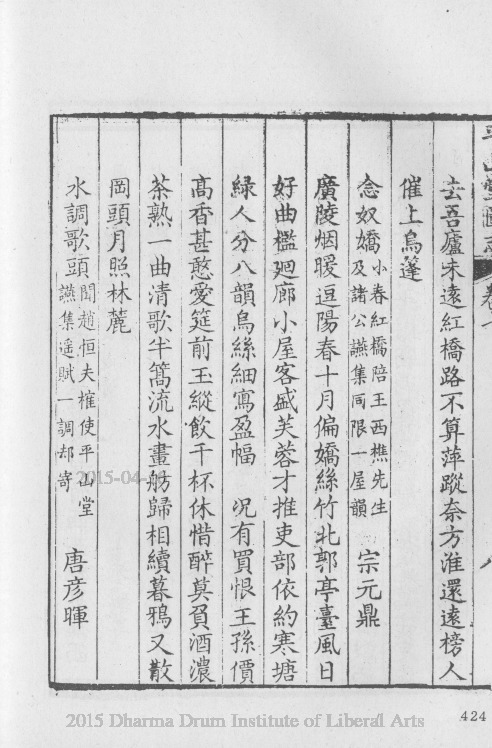 去吾廬未遠紅橋路不算萍蹤奈方淮還遠榜人
催上烏篷
念奴嬌 小春紅橋陪王西樵先生及諸公讌集同限一屋韻 宗元鼎
廣陵烟暖逗陽春十月偏嬌絲竹北郭亭臺風日
好曲檻廻廊小屋客盛芙蓉才推吏部依約寒塘
緑人分八韻烏絲細寫盈幅 况有買恨王孫價
高香甚憨愛筵前玉縱飲千杯休惜醉莫負酒濃
茶熟一曲清歌半篙流水畫舫歸相續暮鴉又散
岡頭月照林麓
水調歌頭 聞趙恒夫榷使平山堂讌集遥賦一調却寄 唐彦暉
2015-04-
424
2015 Dharma Drum Institute of Liberal Arts